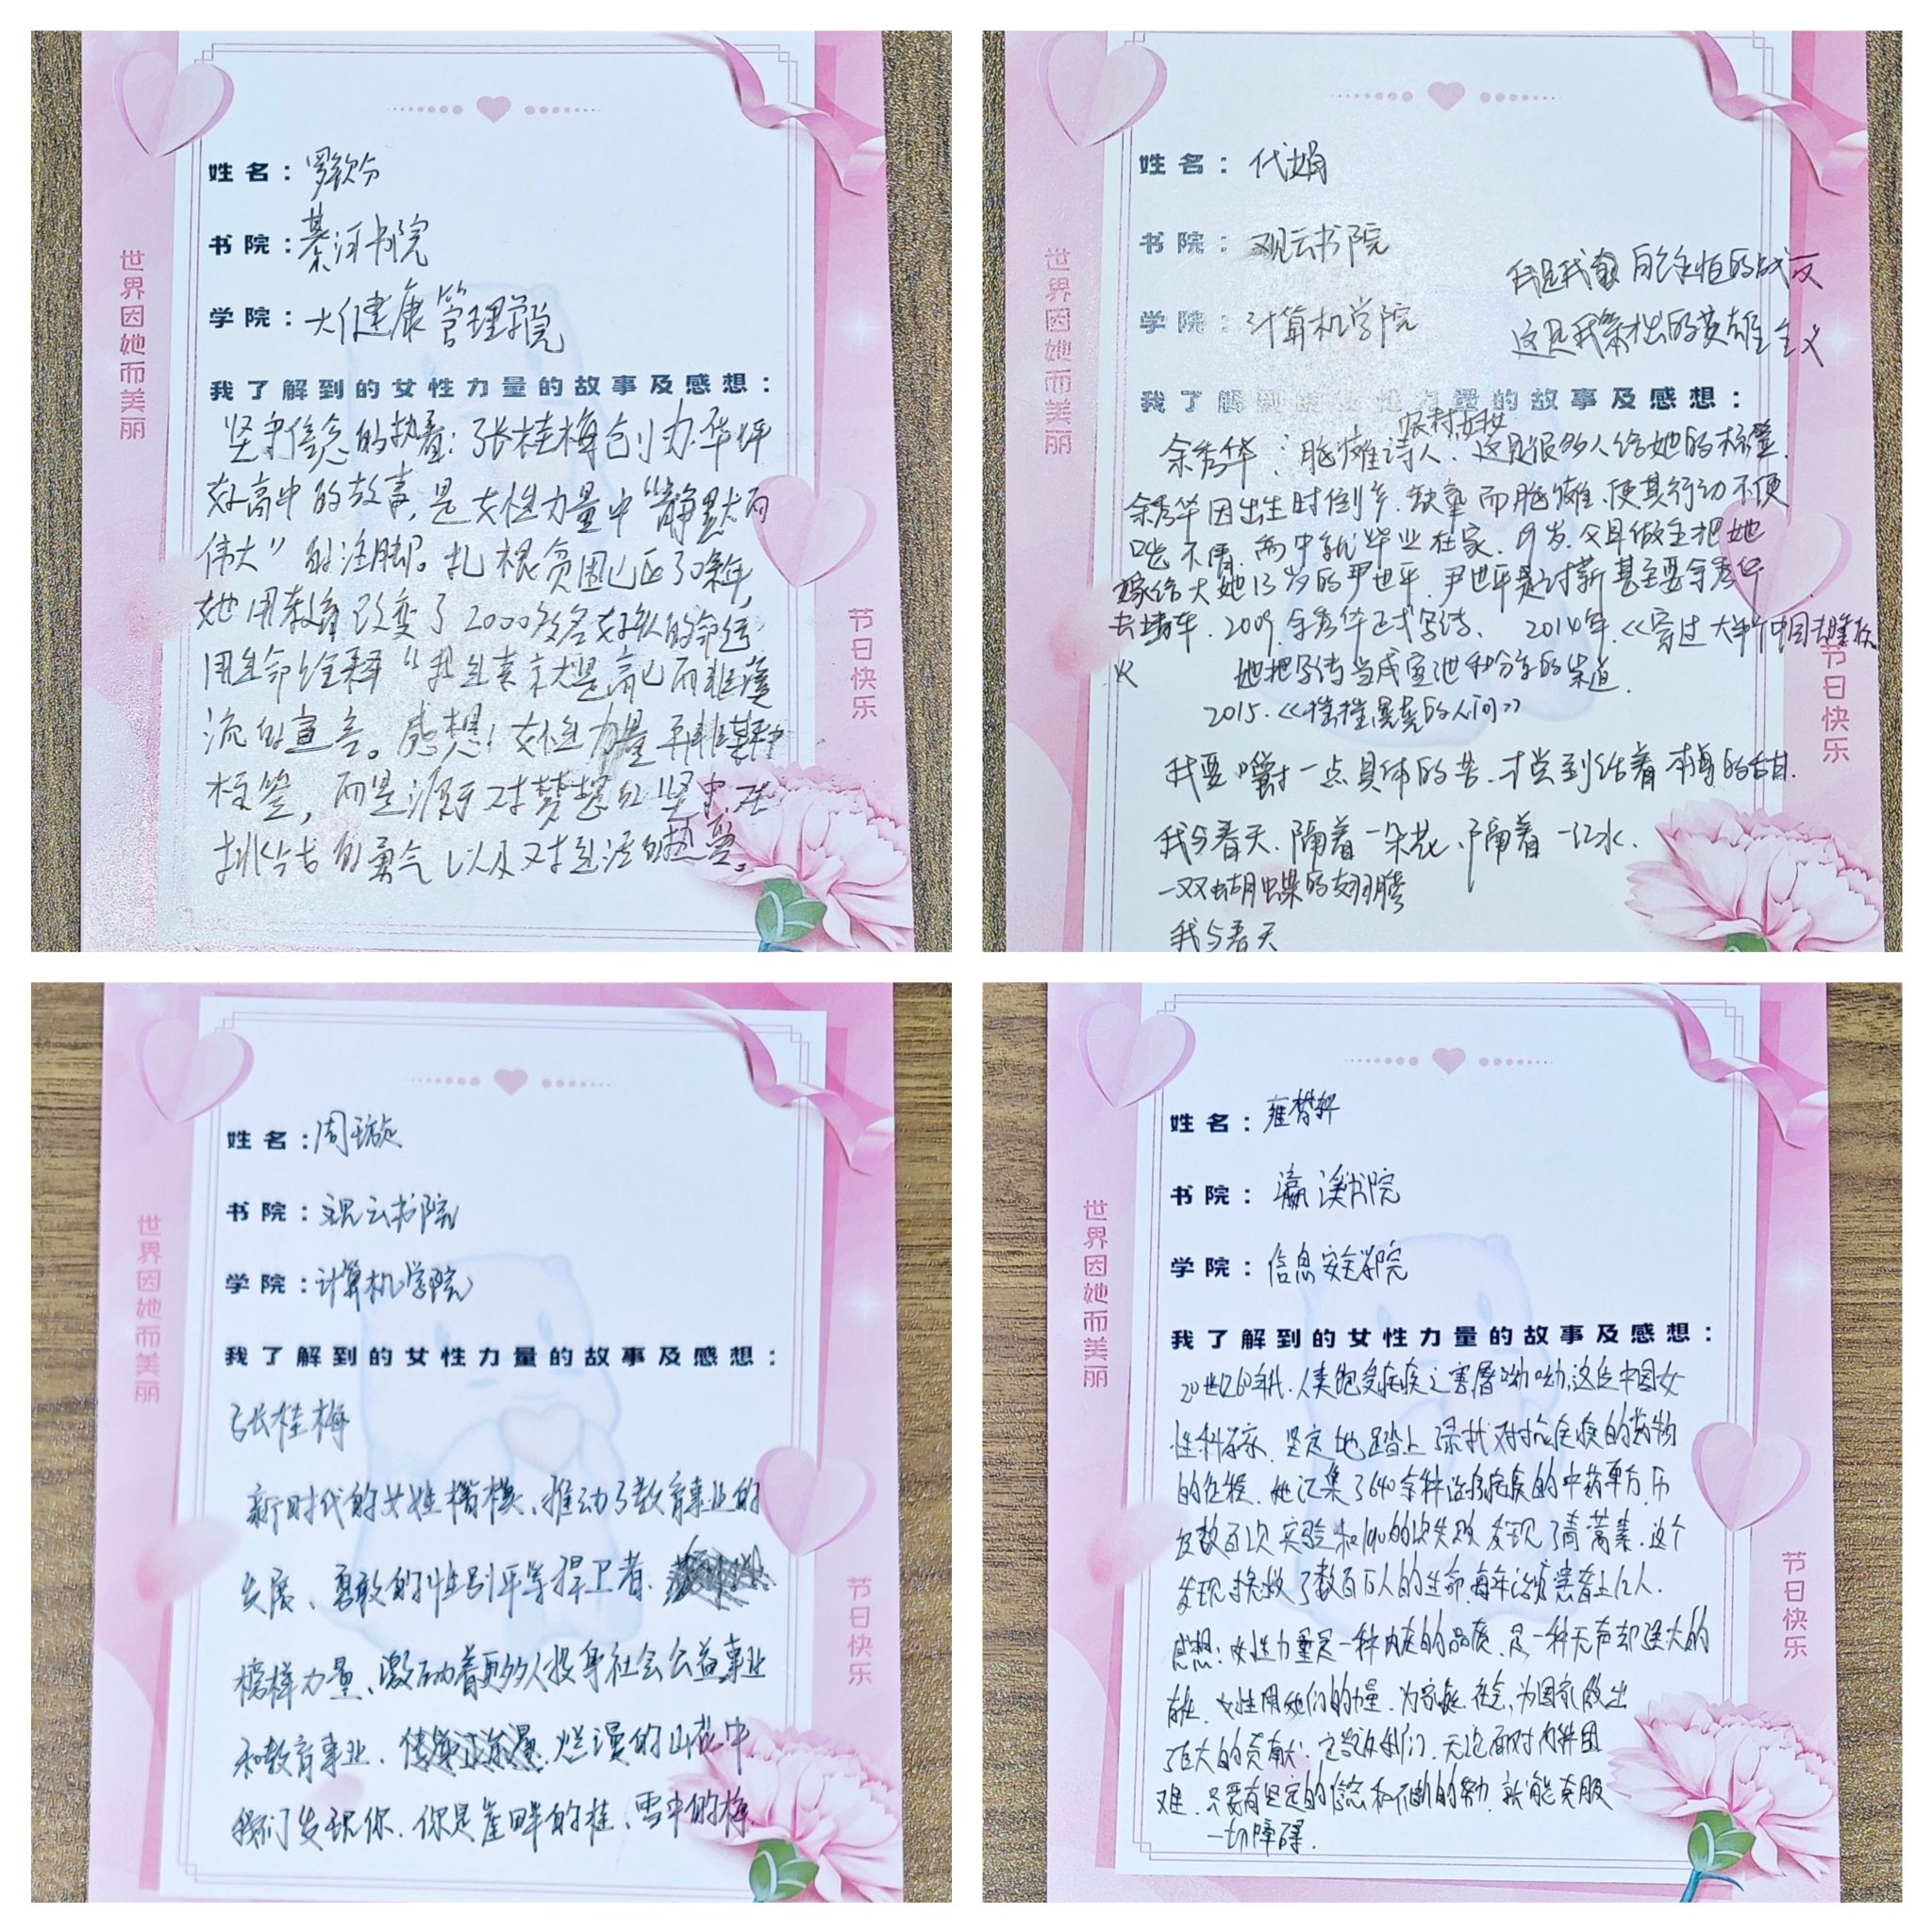 世界因她而美丽
姓名：罗歆兮
书院：綦河书院
学院：大健康管理学院
我了解到的女性力量的故事及感想：
坚守信念的执着：张桂梅创办华坪
女高中的故事，是女性力量中“静默而
伟大”的注脚。扎根贫困山区了30余年，
她用教育改变了2000多名女孩的命运
用生命诠释“我生来就是高山而非溪
流的宣言。感想！女性力量 再非某种
标签，而是源于对梦想的坚守、在
挑战的勇气以及对生活的热爱。
节日快乐
世界因她而美丽
姓名：代娟
书院：观云书院
学院：计算机学院
我是我自己永恒的战友
这是我杰出的英雄主义
我了解到的女性力量的故事及感想：
农村妇女
余秀华：脑瘫诗人、这是很多人给她的标签
余秀华因出生时倒产、缺氧而脑瘫、使其行动不便
口吃不清，高中就毕业在家、19岁，父母做主把她
嫁给大她13岁的尹世平，尹世平是讨薪甚至要余秀华
去撞车. 2009 余秀华正式写诗、 2014年.《穿过大半个中国去睡你
》 她把写诗当成宣泄和分享的渠道.
2015.《摇摇晃晃的人间》
我要嚼一点具体的苦.才尝到活着本身的甜.
我与春天.隔着一朵花、隔着一江水.
一双蝴蝶的翅膀
我与春天
节日快乐
世界因她而美丽
姓名：周璇
书院：观云书院
学院：计算机学院
我了解到的女性力量的故事及感想：
张桂梅
新时代的女性楷模、推动了教育事业的
发展、勇敢的性别平等捍卫者.
榜样力量、激励着更多人投身社会公益事业
和教育事业. 烂漫的山花中
我们发现你.你是崖畔的桂、雪中的梅
节日快乐
世界因她而美丽
姓名：雍
书院：瀛溪书院
学院：信息安全学院
我了解到的女性力量的故事及感想：
20世纪60年代.人类饱受疟疾之害屠呦呦,这位中国女
性科学家、坚定地踏上寻找对抗疟疾的药物
的征程.她汇集了640余种治疗疟疾的中药单方.历
经数百次实验和190的次失败.发现了青蒿素.这个
发现拯救了数百万人的生命.每年治疗患者上亿人.
感想：女性力量是一种内在的品质、是一种无声却强大的
存在.女性用她们的力量.为家庭.社会,为国家做出
了巨大的贡献.它告诉我们.无论面对何种困
难.只要有坚定的信念和不断的努力.就能克服
一切障碍.
节日快乐